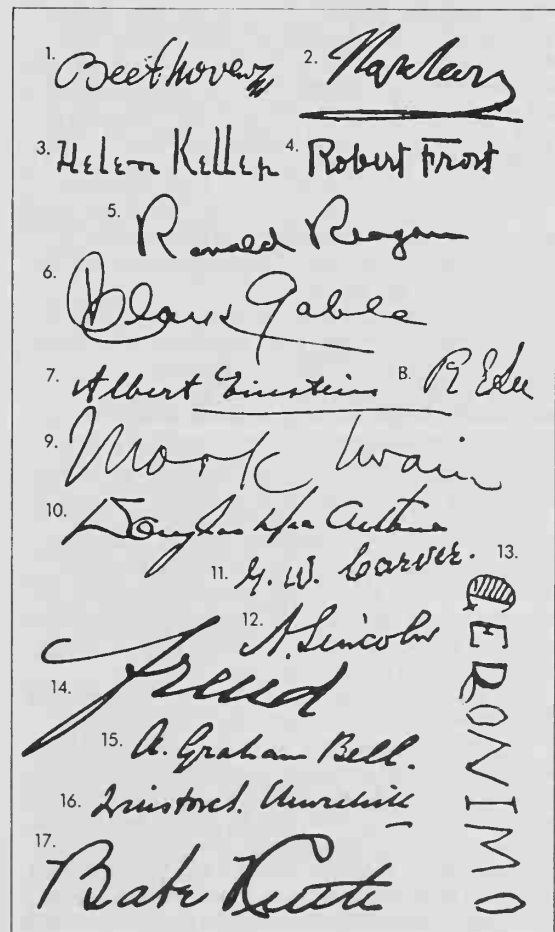 1. Beethoven 2. Napoleon
3. Helen Keller 4. Robert Frost
5. Ronald Reagan
6. Clark Gable
7. Albert Einstein 8. R E Lee
9. Mark Twain
10. Douglas MacArthur
11. G. W. Carver. 13.
GERONIMO
12. A. Lincoln
14. Freud
15. A. Graham Bell.
16. Winston S. Churchill
17. Babe Ruth